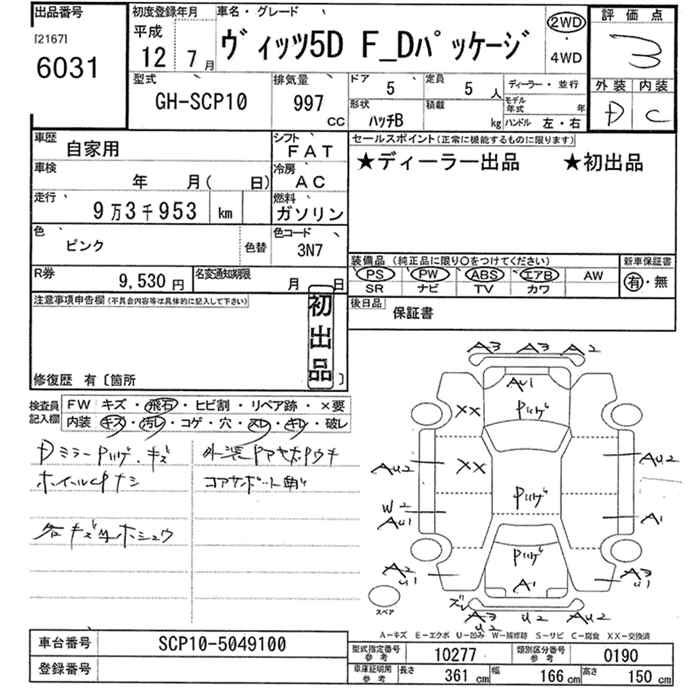 出品番号
[2167]
6031
初度登録年月
平成
12年 7月
車名・グレード
ヴィッツ5D F_Dパッケージ
2WD
・
4WD
評価点
3
外装 内装
D C
型式
GH-SCP10
排気量
997
CC
ドア
5
定員
5人
ディーラー・並行
形状
ハッチB
積載
kg
モデル年式 年
ハンドル 左・右
車歴
自家用
シフト
FAT
車検
年 月( 日)
冷房
AC
走行
9万3千953 km
燃料
ガソリン
色
ピンク
色替
色コード
3N7
R券
9,530円
名変通知期限
月 日
セールスポイント(正常に機能するものに限ります)
★ディーラー出品 ★初出品
装備品(純正品に限り○をつけてください)
PS PW ABS エアB AW
SR ナビ TV カワ
新車保証書
有・無
後日品
保証書
注意事項申告欄(不具合内容等は具体的に記入して下さい)
初出品
修復歴 有〔箇所 〕
検査員記入欄
FW キズ・飛石・ヒビ割・リペア跡・×要
内装 キズ・汚レ・コゲ・穴・スレ・キレ・破レ
Dミラー Pハゲ・キズ
ホイールCPナシ
各キズ
ホシュウ
コアサポート
A3 A3 A2
AU1
Pハゲ
XX
XX
AU2
AU2
Pハゲ
W2
AU1
A1
Pハゲ
A1
A2
U2
A3
U1
スペア
ズレ
A3
U2
U2
AU2
A―キズ E―エクボ U―凹み W―補修跡 S―サビ C―腐食 XX―交換済
車台番号
SCP10-5049100
登録番号
型式指定番号
参考
10277
類別区分番号
参考
0190
車庫証明用
参考
長さ
361cm
幅
166cm
高さ
150cm